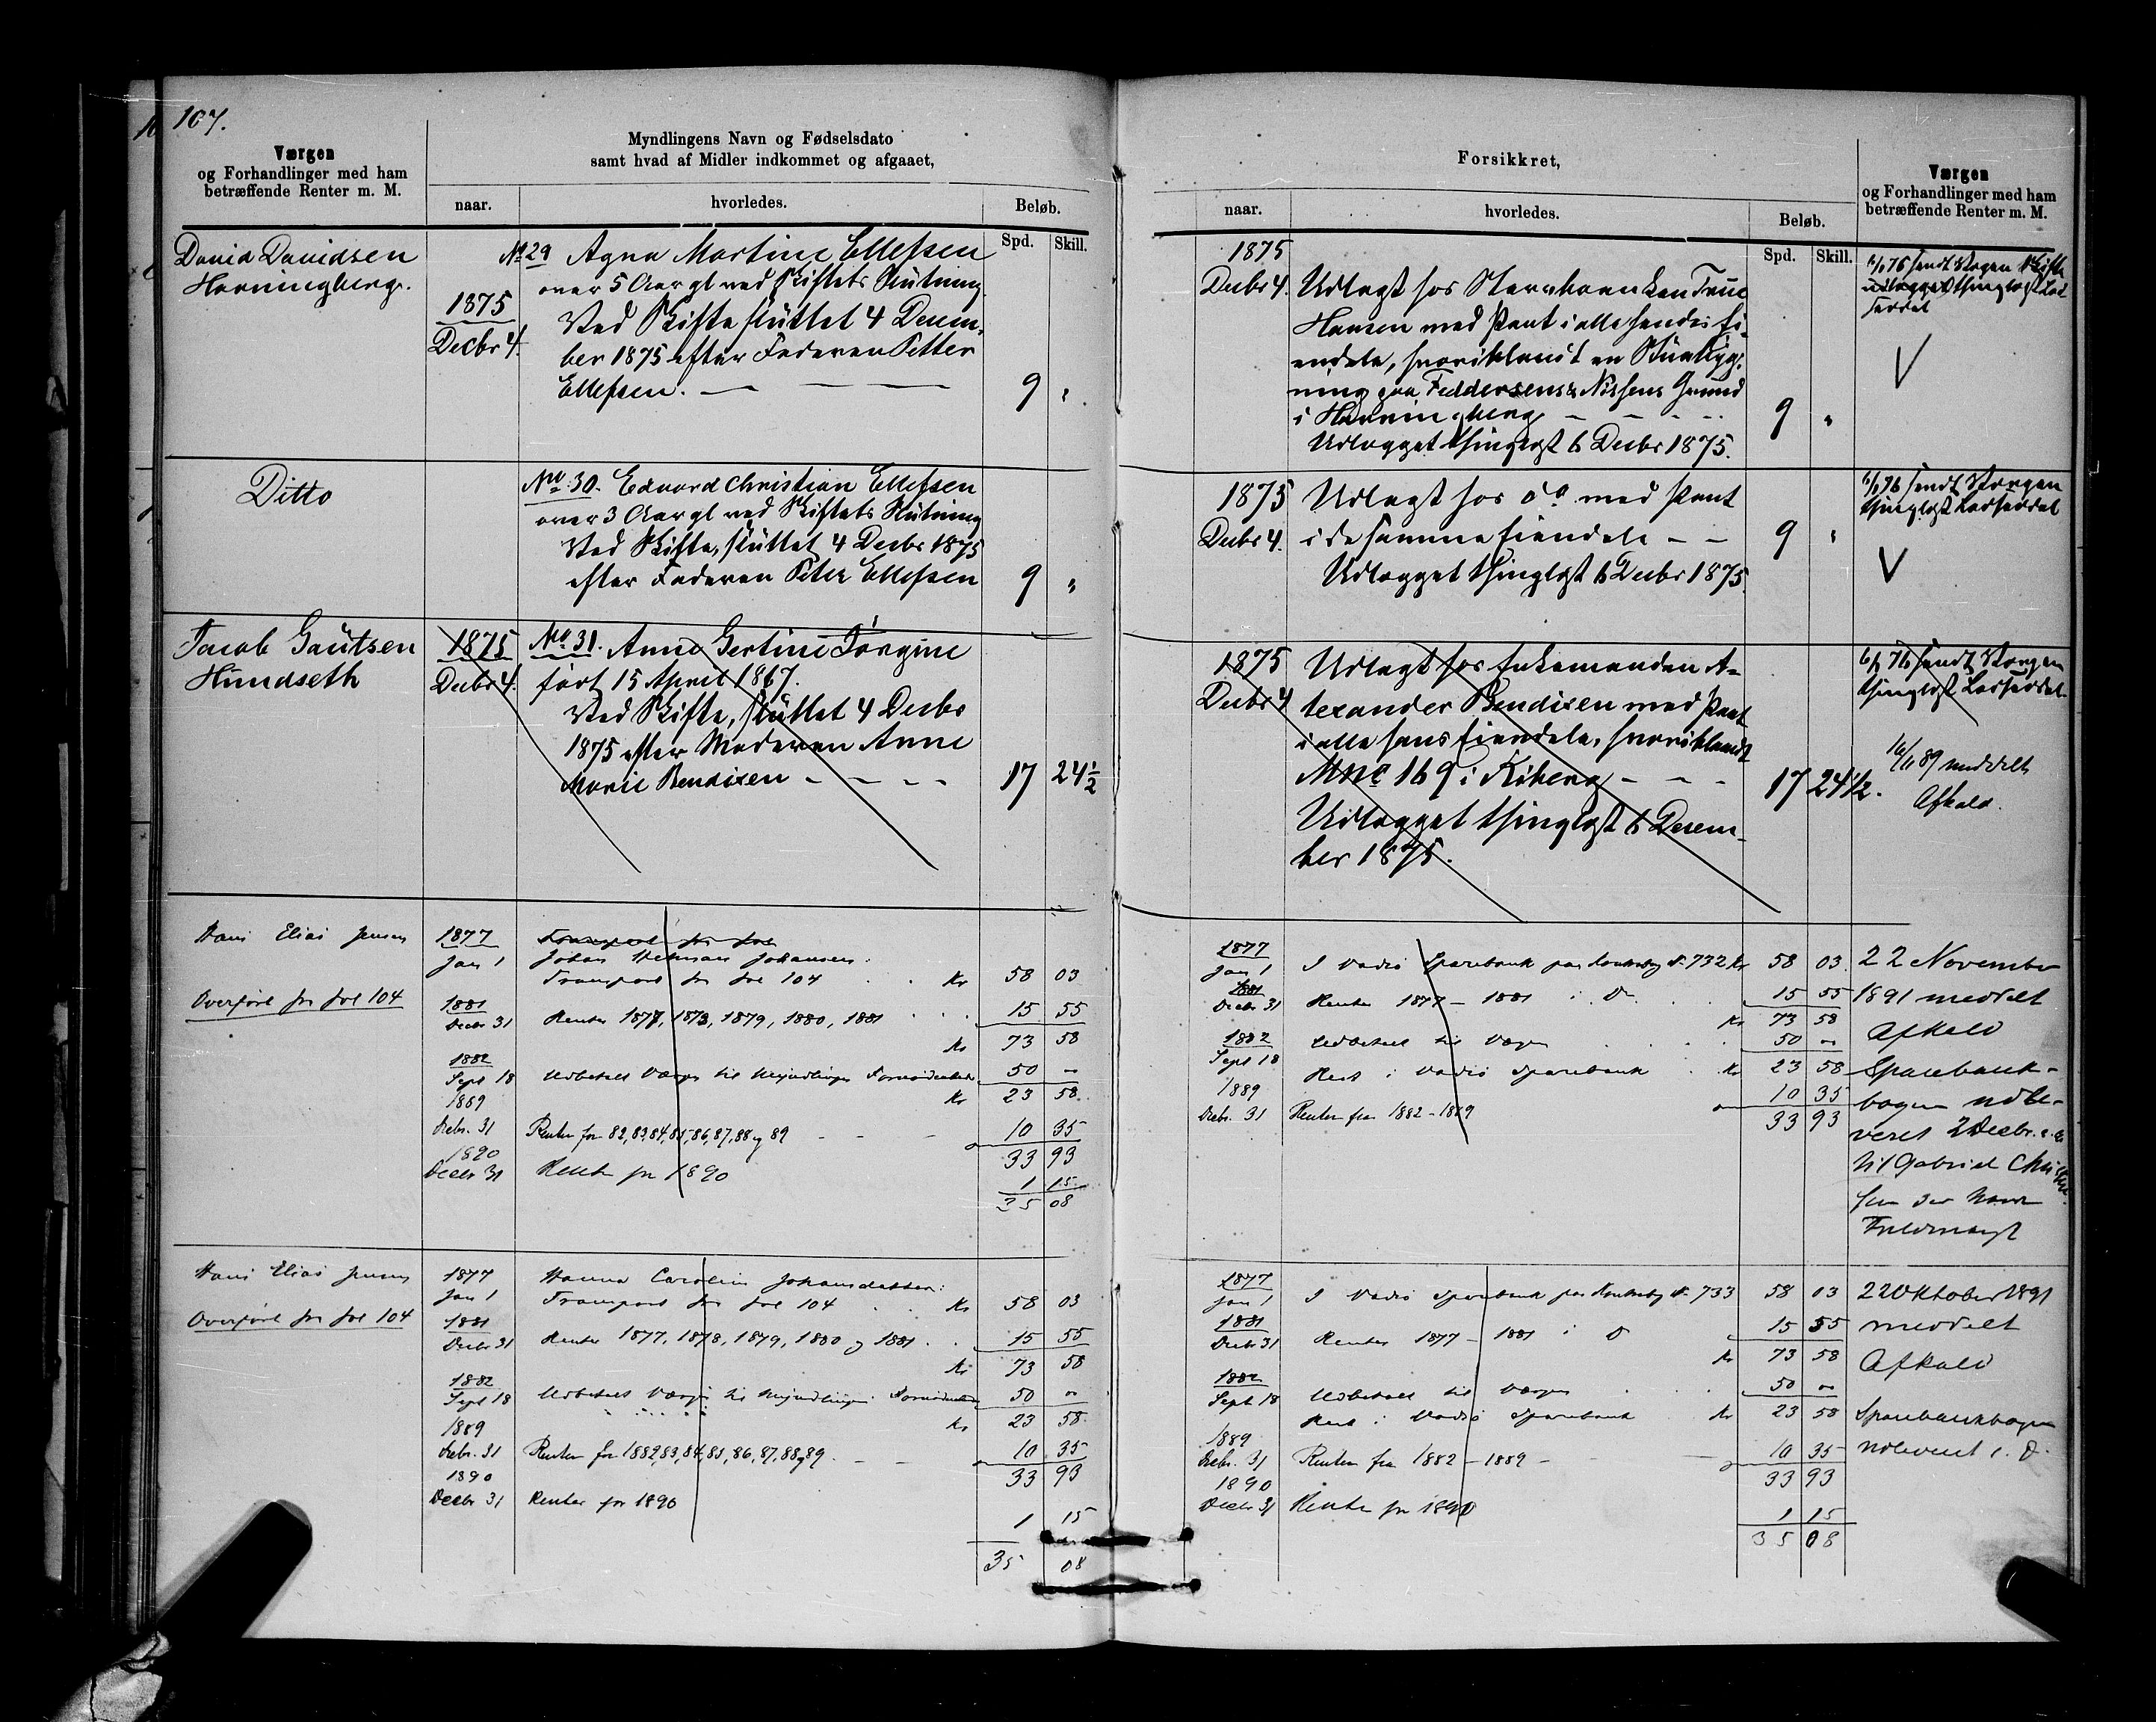 107.
Værgen
og Forhandlinger med ham
betræffende Renter m. M.
Myndlingens Navn og Fødselsdato
samt hvad af Midler indkommet og afgaaet,
naar.
hvorledes.
Beløb.
Spd. Skill.
David Davidsen
Havningberg.
1875
Decbr 4.
No 29 Agna Martine Ellefsen
over 5 Aar gl ved Skiftets Slutning
Ved Skifte sluttet 4 Decem-
ber 1875 efter Faderen Petter
Ellefsen. — — —
9 "
Ditto
No 30. Edvard Christian Ellefsen
over 3 Aar gl ved Skiftets Slutning
Ved Skifte, sluttet 4 Decbr 1875
efter Faderen Peter Ellefsen
9 "
Jacob Gautsen
Hundseth
1875
Decbr 4.
No 31. Anne Gertine Jørgine
født 15 April 1867.
Ved Skifte, sluttet 4 Decbr
1875 efter Moderen Anne
Marie Bendixen - - - -
17 24 1/2
Hans Elias Jensen
Overført fra fol 104
1877
Jan 1
Transport fra fol
Johan Johansen:
Transport fra fol 104 . . Kr 58 03
1881
Decbr 31 Renter 1877, 1878, 1879, 1880, 1881 . . . 15 55
Kr 73 58
1882
Sept 18 Udbetalt Værgen til Myndlingens Fornødenheder 50 "
Kr 23 58
1889
Decbr. 31 Renter for 82, 83, 84, 85, 86, 87, 88 og 89 - - - 10 35
33 93
1890
Decbr 31 Renter for 1890
1 15
35 08
Hans Elias Jensen
Overført fra fol 104
1877
Jan 1
Hanna Carolin Johansdatter:
Transport fra fol 104 . . Kr 58 03
1881
Decbr 31 Renter 1877, 1878, 1879, 1880 og 1881 . . 15 55
Kr 73 58
1882
Sept 18 Udbetalt Værgen til Myndlingens Fornødenheder 50 "
Kr 23 58
1889
Decbr. 31 Renter for 1882, 83, 84, 85, 86, 87, 88 og 89. - - 10 35
33 93
1890
Decbr 31 Renter for 1890
1 15
35 08
Forsikkret,
naar.
hvorledes.
Beløb.
Spd. Skill.
Værgen
og Forhandlinger med ham
betræffende Renter m. M.
1875
Decbr 4. Udlagt hos Enken Trine
Hansen med Pant i alle hendes Ei-
endele, hvoriblandt en Stuebyg-
ning paa Feddersens & Nissens Grund
i Havningberg - - - -
9 "
Udlægget thinglæst 6 Decbr 1875.
6/1 76 sendt Værgen Skifte
udlægget thinglæst Lod
seddel
V
1875
Decbr 4.
Udlagt hos do med Pant
i de samme Eiendele - -
9 "
Udlægget thinglæst 6 Decbr 1875.
6/1 76 sendt Værgen
thinglæst Lodseddel
V
1875
Decbr 4
Udlagt hos Enkemanden A-
lexander Bendixen med Pant
i alle hans Eiendele, hvoriblandt
Mno 169 i Kiberg - - -
17 24 1/2.
Udlægget thinglæst 6 Decem-
ber 1875.
6/1 76 sendt Værgen
thinglæst Lodseddel.
16/1 89 meddelt
Afkald.
1877
Jan 1 I Vadsø Sparebank paa Contrabog No 732 Kr 58 03
1881
Decbr 31 Renter 1877 - 1881 i Do . . . 15 55
Kr 73 58
1882
Sept 18 Udbetalt til Værgen . . . . 50 "
Rest i Vadsø Sparebank . . Kr 23 58
1889
Decbr. 31 Renter fra 1882 - 1889
10 35
33 93
22 November
1891 meddelt
Afkald
Sparebank-
bogen udle-
veret 2 Decbr.
til Gabriel Christen
sen
1877
Jan 1 I Vadsø Sparebank paa Contrabog No 733 58 03
1881
Decbr 31 Renter 1877 - 1881 i Do 15 55
Kr 73 58
1882
Sept 18 Udbetalt til Værgen . . . 50 "
Rest i Vadsø Sparebank . . Kr 23 58
1889
Decbr. 31 Renter fra 1882 - 1889 - - 10 35
33 93
1890
Decbr 31 Renter for 1890
1 15
35 08
22 Oktober 1891
meddelt
Afkald
Sparebankbogen
udleveret s. D.